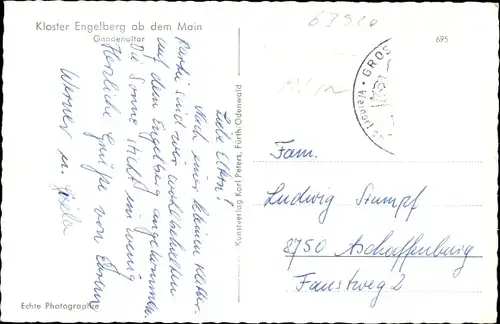 Kloster Engelberg ob dem Main
Gnadenaltar
63920
695
GROS
Liebe Eltern!
Nach einer kleinen Kletter-
partie sind wir wohlbehalten
auf dem Engelberg angekommen.
Die Sonne sticht ein wenig.
Herzliche Grüße von
Werner u.
Kunstverlag Karl Peters, Fürth/Odenwald
Fam.
Ludwig Stumpf
8750 Aschaffenburg
Faustweg 2
Echte Photographie